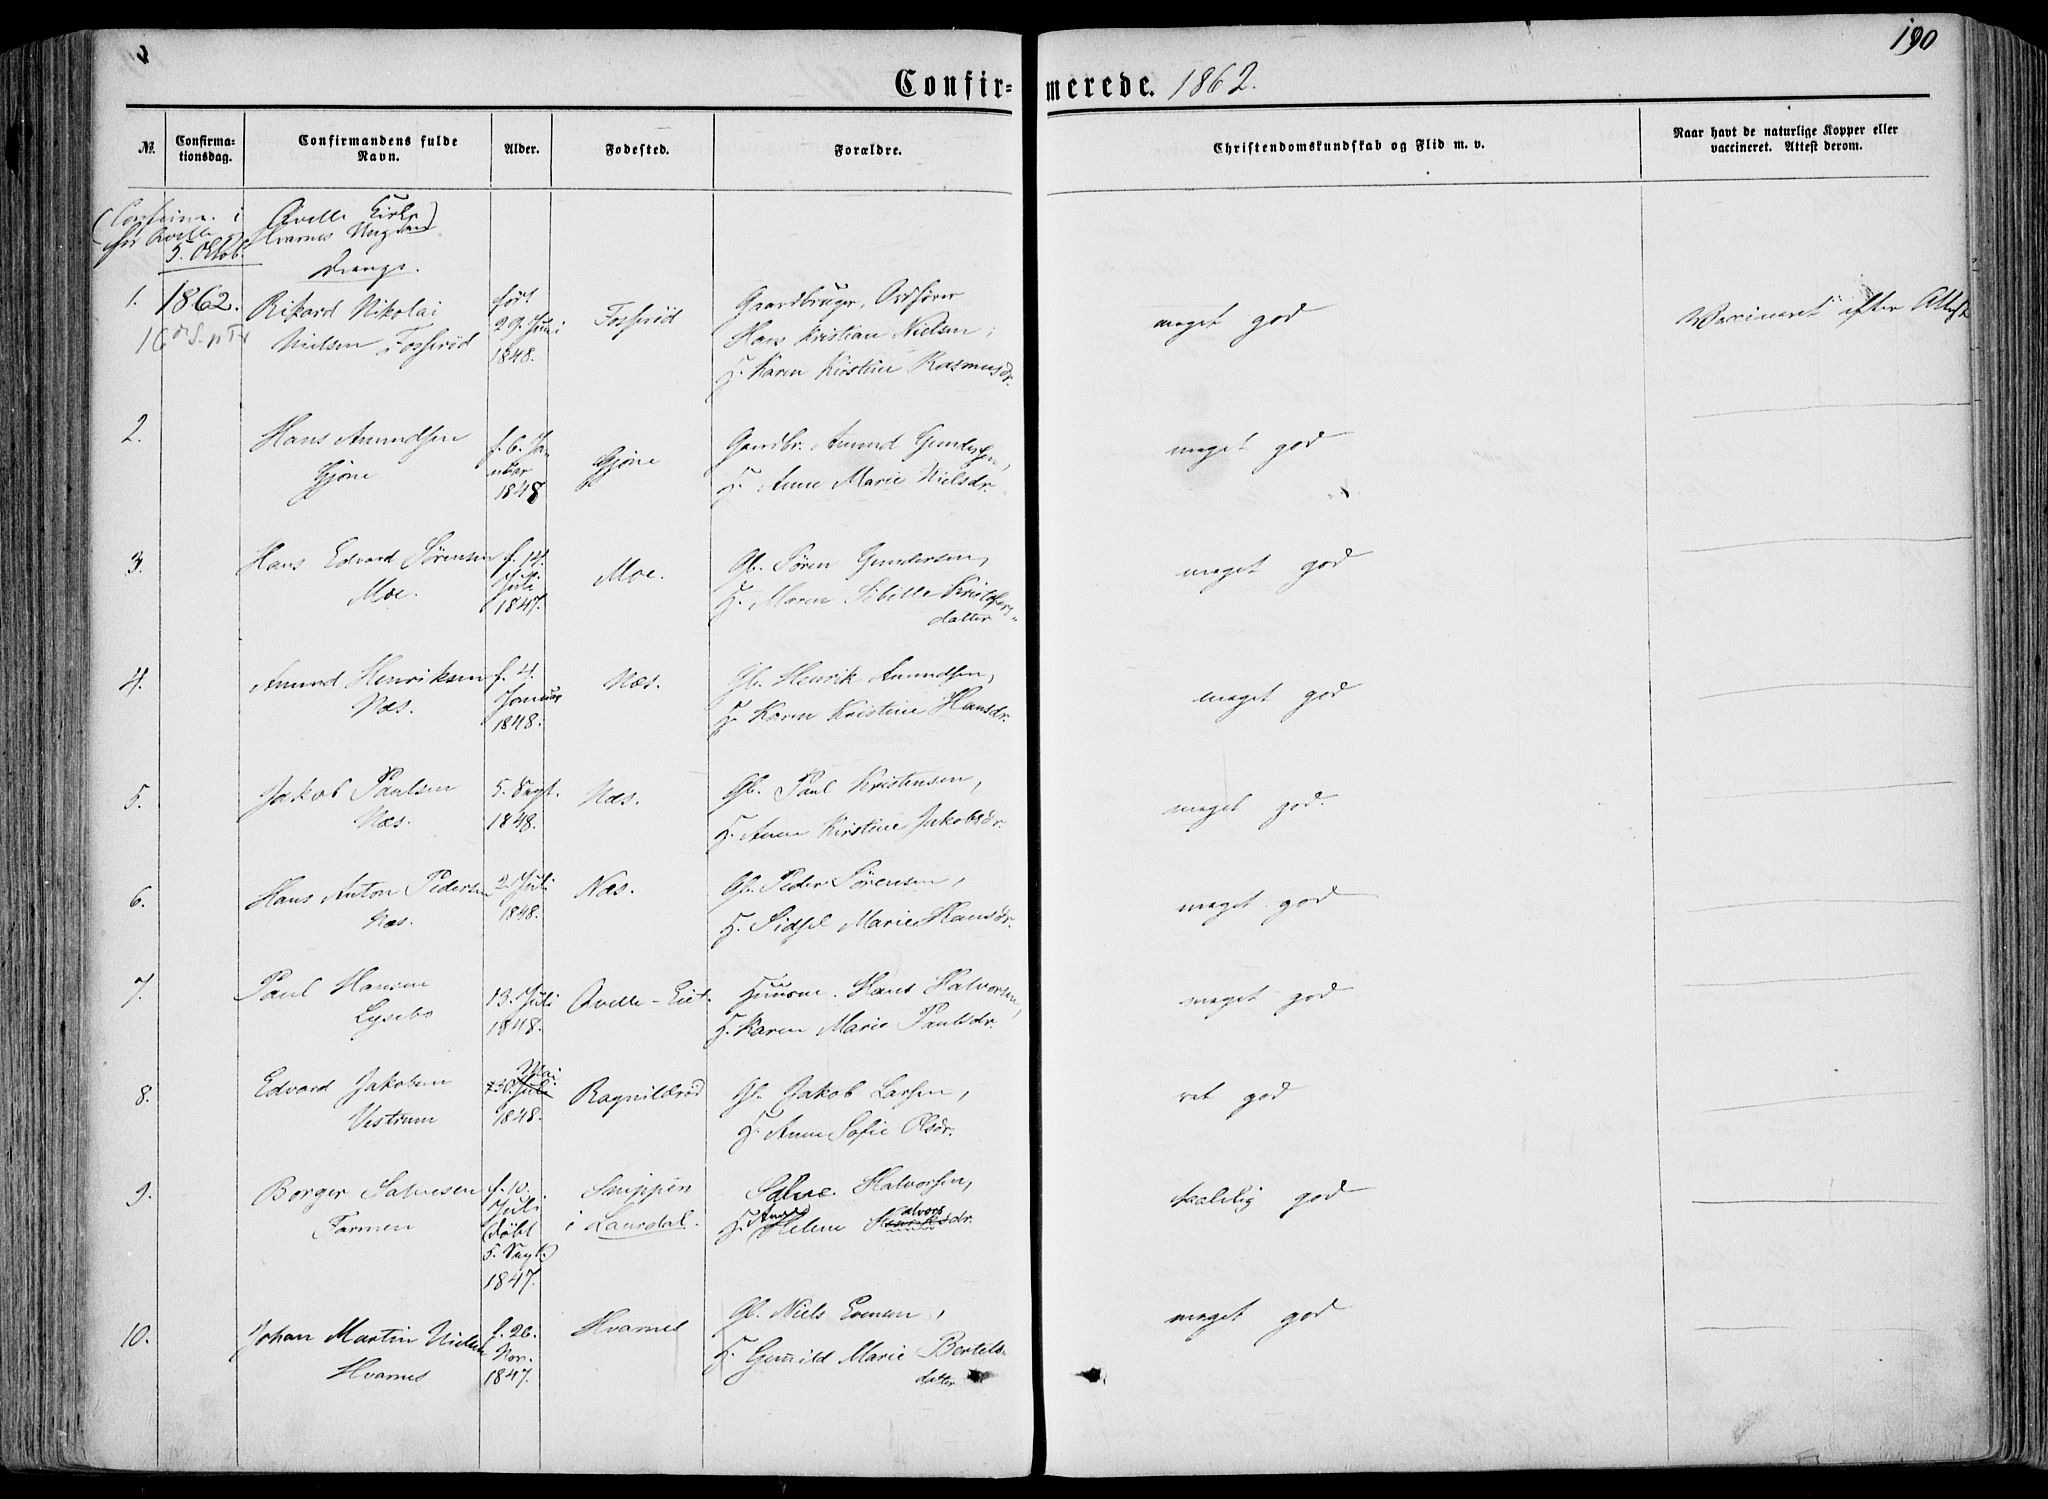 190
Confir=merede. 1862.
№. Confirma-tionsdag. Confirmandens fulde Navn. Alder. Fødested. Forældre. Christendomskundskab og Flid m. v. Naar havt de naturlige Kopper eller vaccineret. Attest derom.
(Confirm. i Qvelle Kirke
for Qvelle og Hvarnes Ungdom)
5. Octob.
Drenge.
1. 1862. Rikard Nikolai født Fosserød Gaardbruger, Ordfører meget god Vaccineret efter Attest
Nielsen Fosserød 29. Juni Hans Kristian Nielsen,
1848. H. Karen Kirstine Rasmusdr.
2. Hans Amundsen f. 6. Ja- Gjøne Gaardbr. Amund Gundersen, meget god
Gjøne nuar H. Anne Marie Nielsdr.
1848
3. Hans Edvard Sørensen f. 14. Moe. Gb. Søren Gundersen, meget god
Moe. Juli H. Maren Sibille Kristofers
1847. datter
4. Amund Henriksen f. 4. Næs. Gb. Henrik Amundsen, meget god
Næs. Januar H. Karen Kristine Hansdr.
1848.
5. Jakob Paulsen 5. Sept. Næs. Gb. Paul Kristensen, meget god.
Næs. 1848. H. Anne Kirstine Jakobsdr.
6. Hans Anton Pedersen 2. Juli Næs. Gb. Peder Sørensen, meget god
Næs. 1848. H. Sidsel Marie Hansdr.
7. Paul Hansen 13. Juli Qvelle-Eie. Huusm. Hans Halvorsen, meget god
Lysebo 1848. H. Karen Marie Paulsdr.
8. Edvard Jakobsen 30 Juli Mai. Ragnildrød Gb. Jakob Larsen, ret god
Vestrum 1848. H. Anne Sofie Olsdr.
9. Borger Salvesen f. 10. Snippen Salve Halvorsen, taalelig god
Farmen Juli i Laurdal. H. Helene Halvorsdr.
(døbt
5. Sept.)
1847.
10. Johan Martin Nielsen f. 26. Hvarnes Gb. Niels Evensen, meget god
Hvarnes Nov. H. Gunild Marie Bertels-
1847. datter